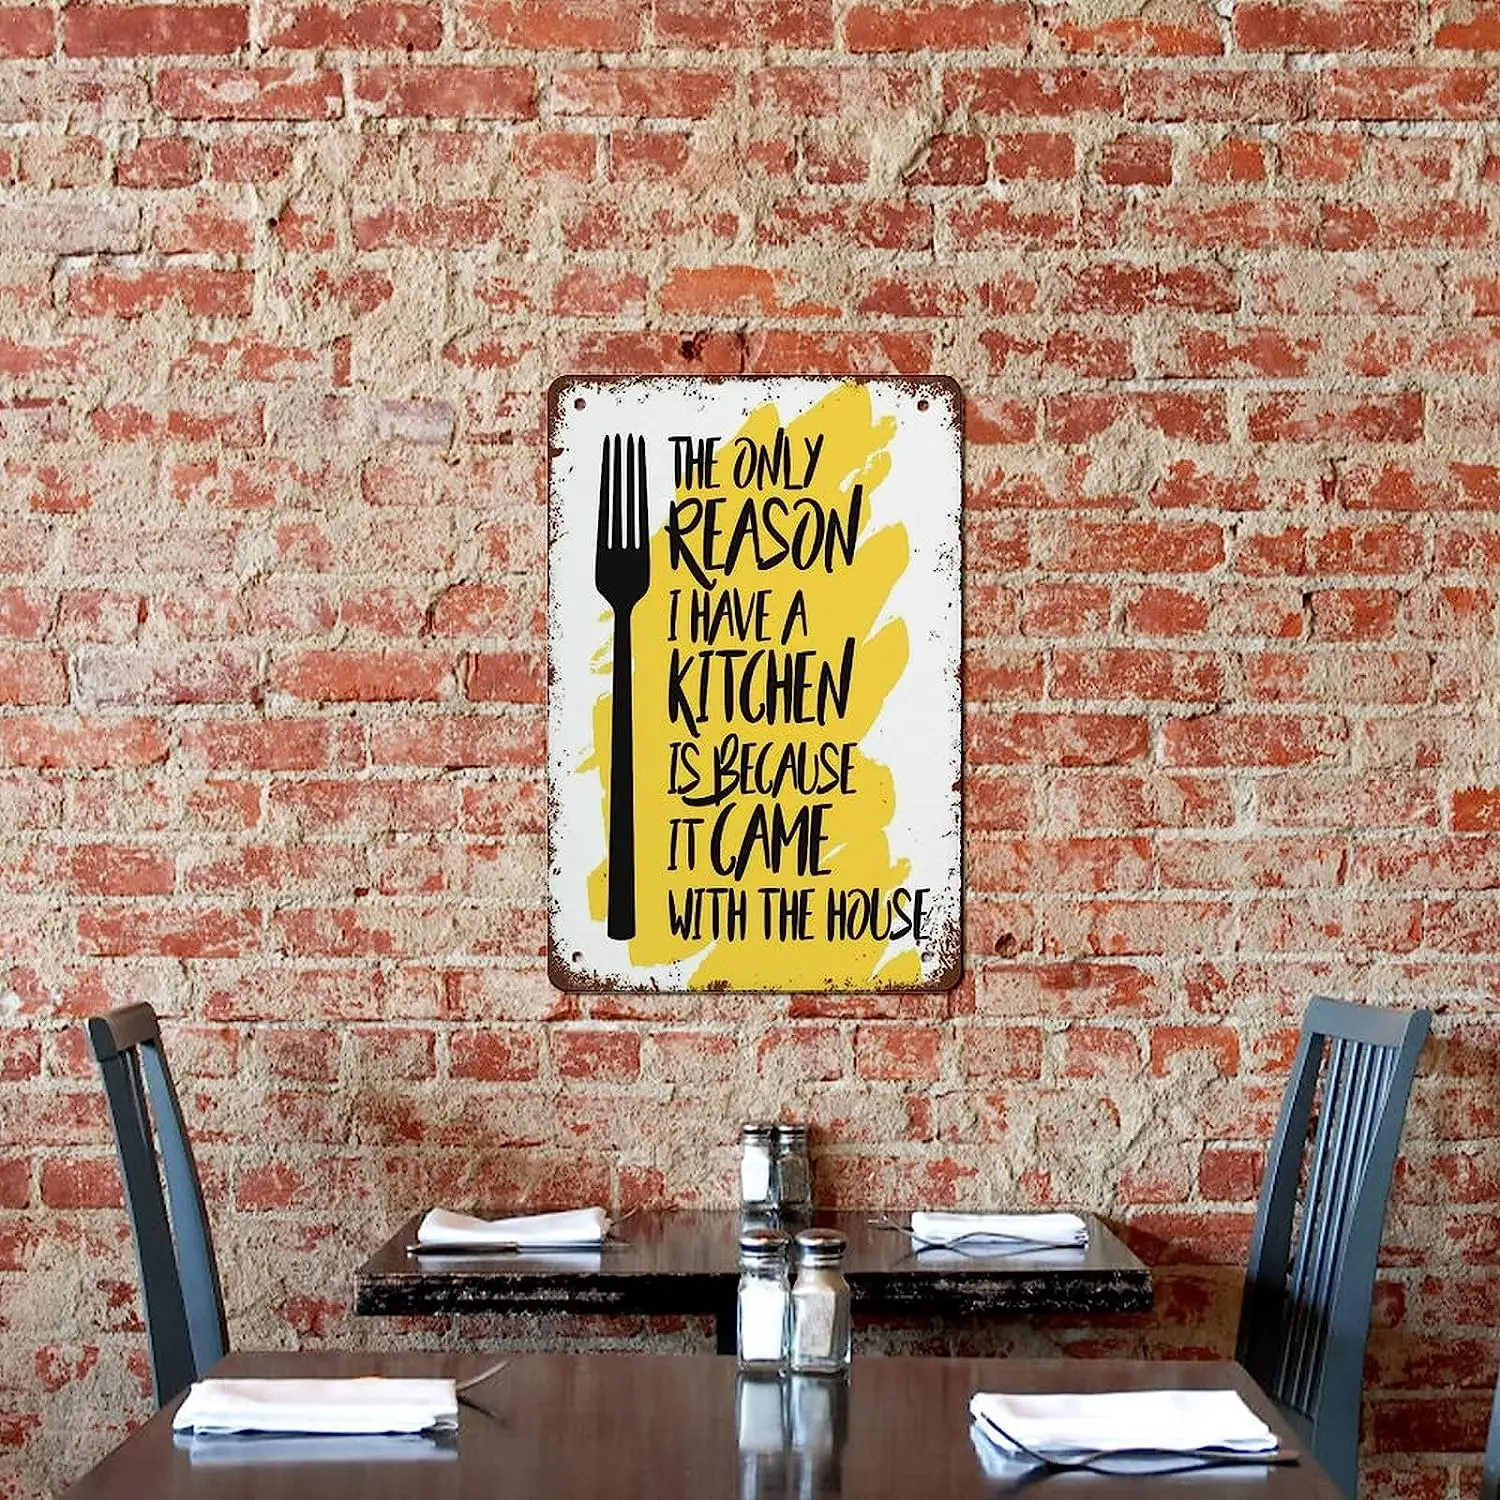 THE ONLY
REASON
I HAVE A
KITCHEN
IS BECAUSE
IT CAME
WITH THE HOUSE